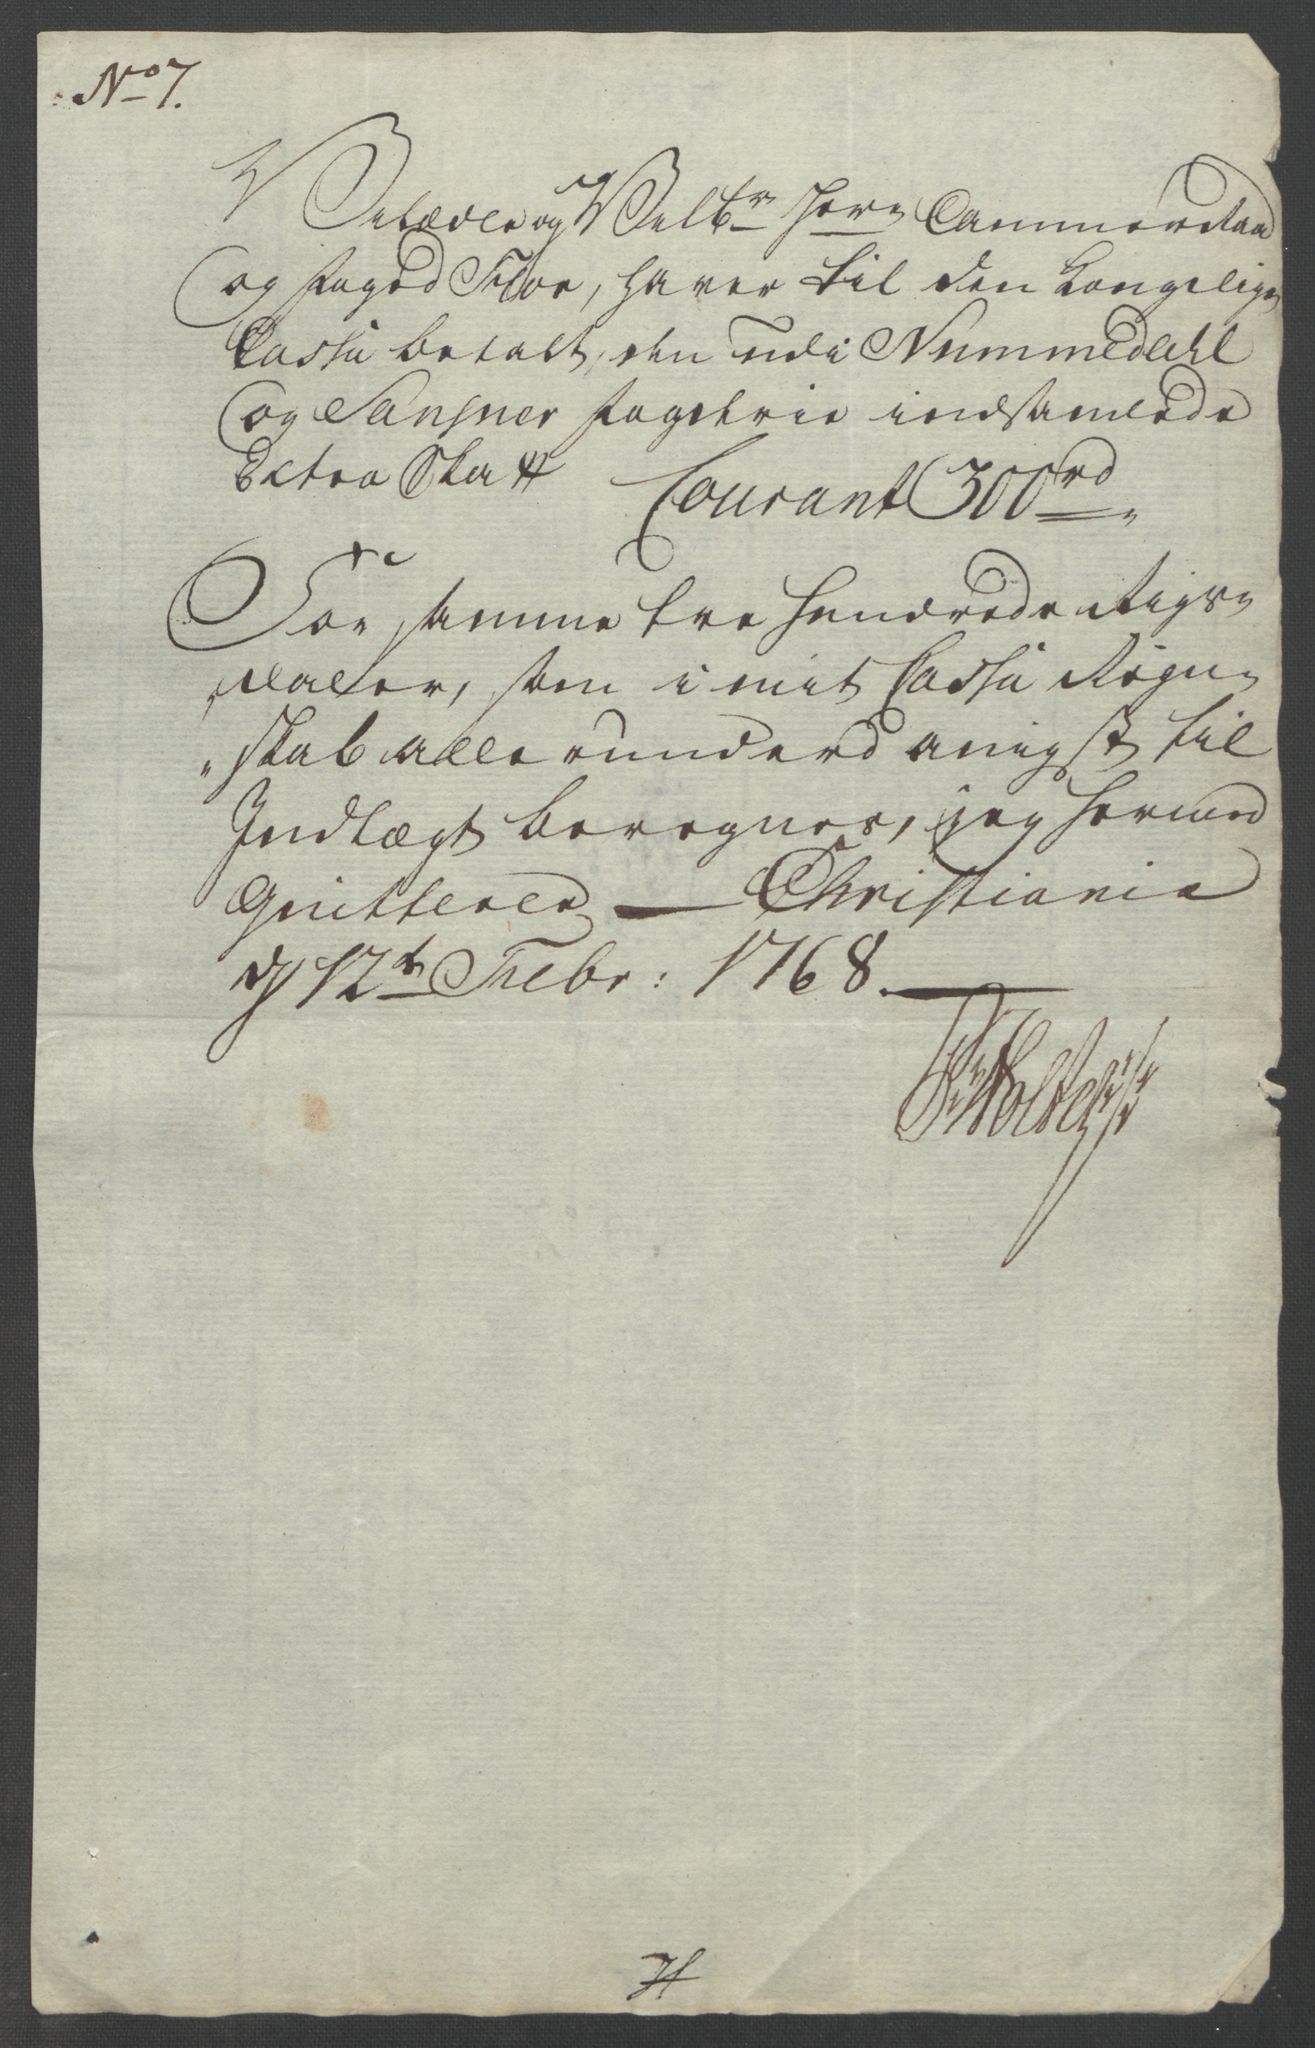 No 7.
Velædle og Velbr Herr Cammerraad
og Foged Flor, haver til den Kongelige
Cassa betalt, den udi Nummedahl
og Sansver Fogderie indsamlede
Extra Skatt Courant 300 rd
For samme tre hundrede Rigs-
daler, som i mit Cassa Regn-
skab allerunderdanigst til
Indtægt beregnes, jeg hermed
Qvitterer Christiania
d 12t Febr: 1768.